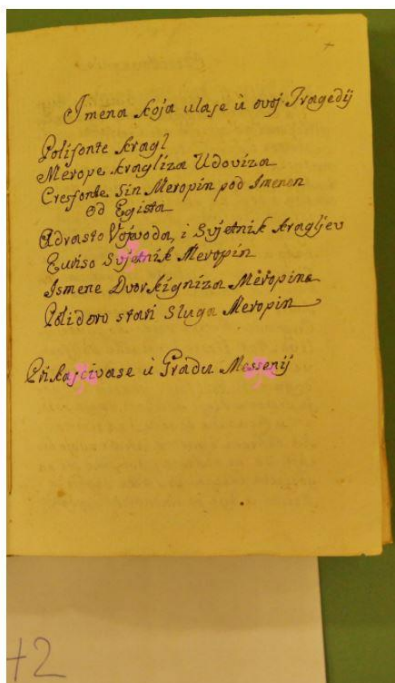 Imena koja ulaze ù ovój Tragedij
Polifonte kragl
Merope kragliza Udoviza
Cresfonte Sin Meropin pod Imenen
od Egista
Adrasto Vojvoda, i Svjetnik kragljev
Euriso Svjetnik Meropin
Ismene Dvorkigniza Meropina
Polidoro stari Sluga Meropin
Prikascivase ù Gradu Messenij
+2